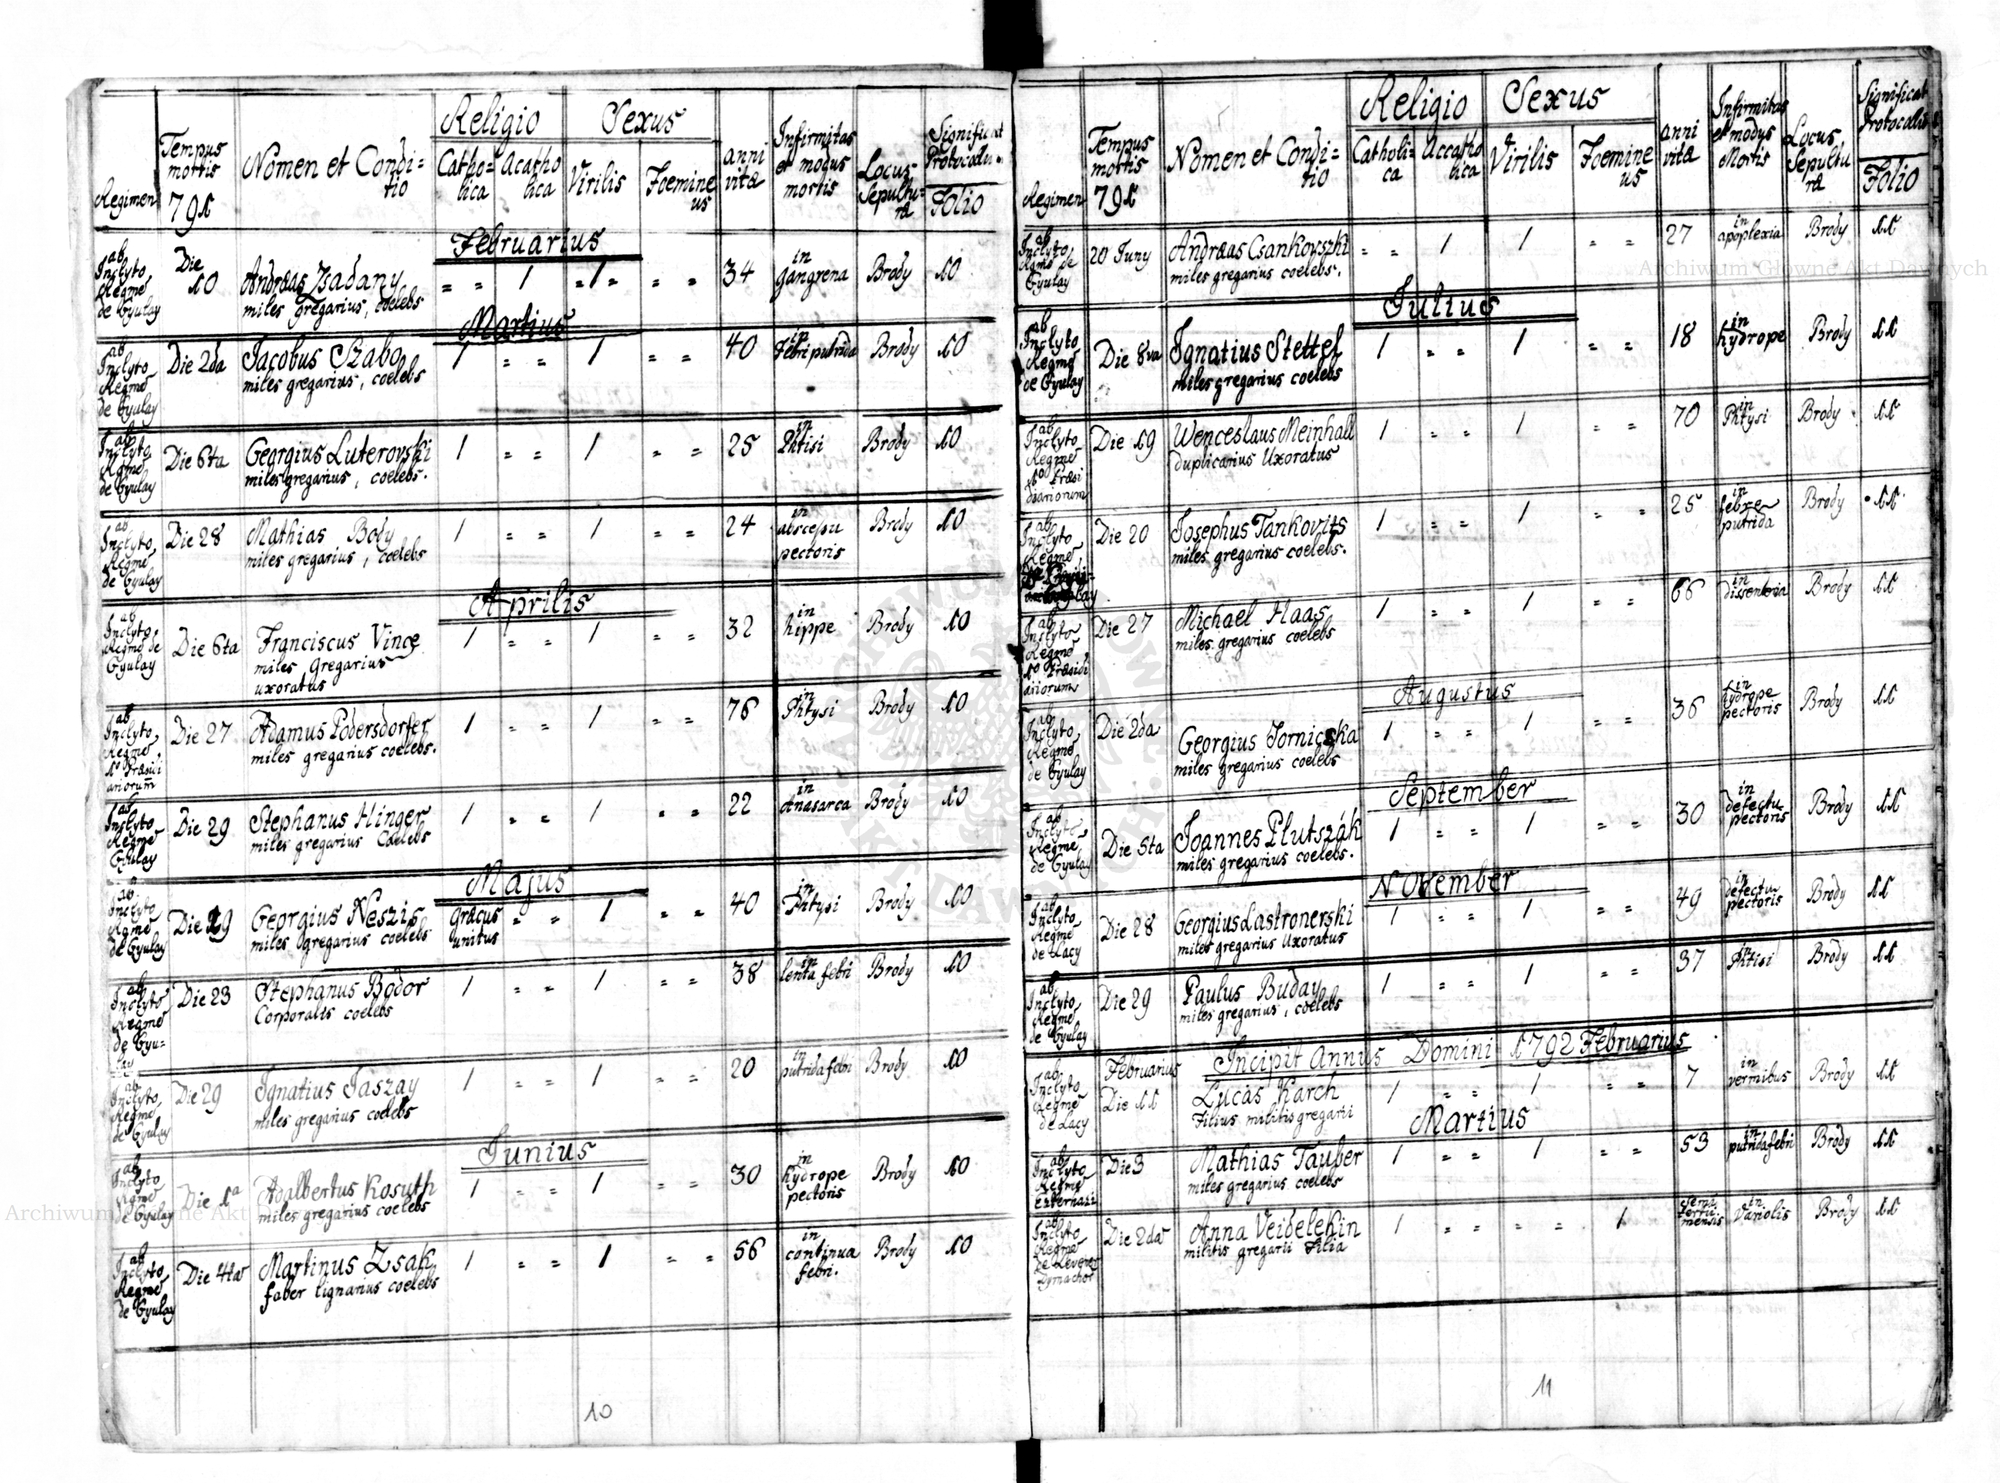 Regimen
Tempus
mortis
791
Nomen et Condi=
tio
Religio
Catho=
lica
Acatho
lica
Sexus
Virilis
Foemine
us
anni
vitæ
Infirmitas
et modus
mortis
Locus
Sepultu=
ræ
Significat
Protocoli
Folio
Februarius
ab
Inclyto
Regme
de Gyulay
Die
10
Andreas Zsadany
miles gregarius, coelebs
= = 1 = 1 = = 34
in
gangrena
Brody 10
Martius
ab
Inclyto
Regme
de Gyulay
Die 2da
Jacobus Szabo
miles gregarius, coelebs
1 = = 1 = = 40
in
Febri putrida
Brody 10
ab
Inclyto
Regme
de Gyulay
Die 6ta
Georgius Luterovski
miles gregarius, coelebs.
1 = = 1 = = 25
in
Phtisi
Brody 10
ab
Inclyto
Regme
de Gyulay
Die 28
Mathias Body
miles gregarius, coelebs
1 = = 1 = = 24
in
abscessu
pectoris
Brody 10
Aprilis
ab
Inclyto
Regme de
Gyulay
Die 6ta
Franciscus Vince
miles Gregarius
uxoratus
1 = = 1 = = 32
in
hippe
Brody 10
ab
Inclyto
Regme
1o Præsidi
ariorum
Die 27
Adamus Pobersdorfer
miles gregarius coelebs.
1 = = 1 = = 76
in
Phtysi
Brody 10
ab
Inclyto
Regme
Gyulay
Die 29
Stephanus Hinger
miles gregarius Coelebs
1 = = 1 = = 22
in
Anasarca
Brody 10
Majus
ab
Inclyto
Regme
de Gyulay
Die 19
Georgius Neszis
miles gregarius coelebs
græcus
unitus
= = 1 = = 40
in
Phtysi
Brody 10
ab
Inclyto
Regme
de Gyu=
lay
Die 23
Stephanus Bodor
Corporalis coelebs
1 = = 1 = = 38
in
lenta febri
Brody 10
ab
Inclyto
Regme
de Gyulay
Die 29
Ignatius Jaszay
miles gregarius coelebs
1 = = 1 = = 20
in
putrida febri
Brody 10
Junius
ab
Inclyto
Regme
de Gyulay
Die 1a
Adalbertus Kosuth
miles gregarius coelebs
1 = = 1 = = 30
in
hydrope
pectoris
Brody 10
ab
Inclyto
Regme
de Gyulay
Die 4ta
Martinus Zsak
faber lignarius coelebs
1 = = 1 = = 56
in
continua
febri.
Brody 10
10
Regimen
Tempus
mortis
791
Nomen et Condi=
tio
Religio
Catholi=
ca
Accatho
lica
Sexus
Virilis
Foemine
us
anni
vitæ
Infirmitas
et modus
Mortis
Locus
Sepultu
ræ
Significat
Protocolli
Folio
ab
Inclyto
Regme de
Gyulay
20 Juny
Andreas Csankovszki
miles gregarius coelebs.
= = 1 1 = = 27
in
apoplexia
Brody 11
Julius
ab
Inclyto
Regme
de Gyulay
Die 8va
Ignatius Stettel
miles gregarius coelebs
1 = = 1 = = 18
in
hydrope
Brody 11
ab
Inclyto
Regme
1o Præsi
diariorum
Die 19
Wenceslaus Meinhall
duplicarius Uxoratus
1 = = 1 = = 70
in
Phtysi
Brody 11
ab
Inclyto
Regme
Die 20
Josephus Tankovits
miles gregarius coelebs.
1 = = 1 = = 25
in
febre
putrida
Brody 11
ab
Inclyto
Regme
1o Præsidi
ariorum
Die 27
Michael Haas
miles gregarius coelebs
1 = = 1 = = 66
in
dissenteria
Brody 11
Augustus
ab
Inclyto
Regme
de Gyulay
Die 2da
Georgius Tornicska
miles gregarius coelebs
1 = = 1 = = 36
in
hydrope
pectoris
Brody 11
September
ab
Inclyto
Regme
de Gyulay
Die 5ta
Joannes Plutszák
miles gregarius coelebs.
1 = = 1 = = 30
in
defectu
pectoris
Brody 11
November
ab
Inclyto
Regme
de Lacy
Die 28
Georgius Lastronerski
miles gregarius Uxoratus
1 = = 1 = = 49
in
defectu
pectoris
Brody 11
ab
Inclyto
Regme
de Gyulay
Die 29
Paulus Buday
miles gregarius, coelebs
1 = = 1 = = 37
in
Phtisi
Brody 11
Incipit Annus Domini 1792 Februarius
ab
Inclyto
Regme
de Lacy
Februarius
Die 11
Lucas Karch
Filius militis gregarii
1 = = 1 = = 7
in
vermibus
Brody 11
Martius
ab
Inclyto
Regme
Esterhazi
Die 3
Mathias Tauber
miles gregarius coelebs
1 = = 1 = = 53
in
putrida febri
Brody 11
ab
Inclyto
Regme
Die 2da
Anna Veidelekin
militis gregarii Filia
1 = = = = 1
in
Variolis
Brody 11
11
Archiwum Główne Akt Dawnych
Archiwum Główne Akt Dawnych
ARCHIWUM GŁÓWNE AKT DAWNYCH